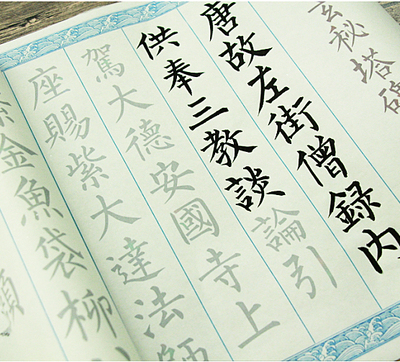 玄秘塔碑
唐故左街僧録内
供奉三教談論引
駕大德安國寺上
座賜紫大達法師
金魚袋柳